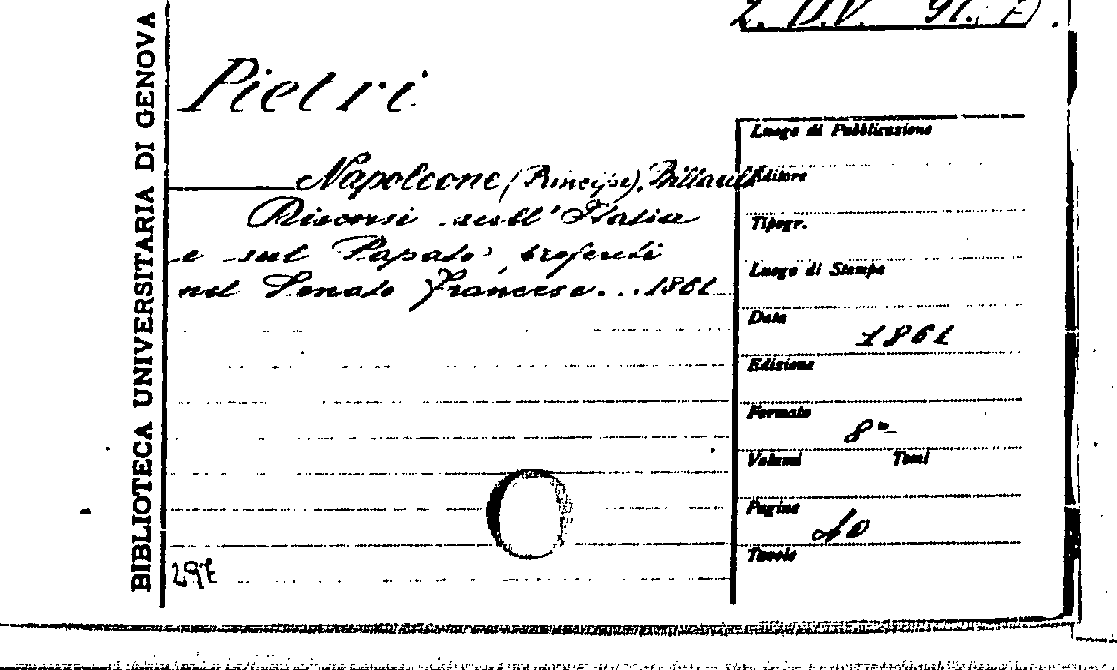 BIBLIOTECA UNIVERSITARIA DI GENOVA
Pietri
Napoleone (Principe), Billault
Discorsi sull'Italia
e sul Papato, proferiti
nel Senato Francese...1861
Luogo di Pubblicazione
Editore
Tipogr.
Luogo di Stampa
Data
1861
Edizione
Formato
8°
Volumi Tomi
Pagine
40
Tavole